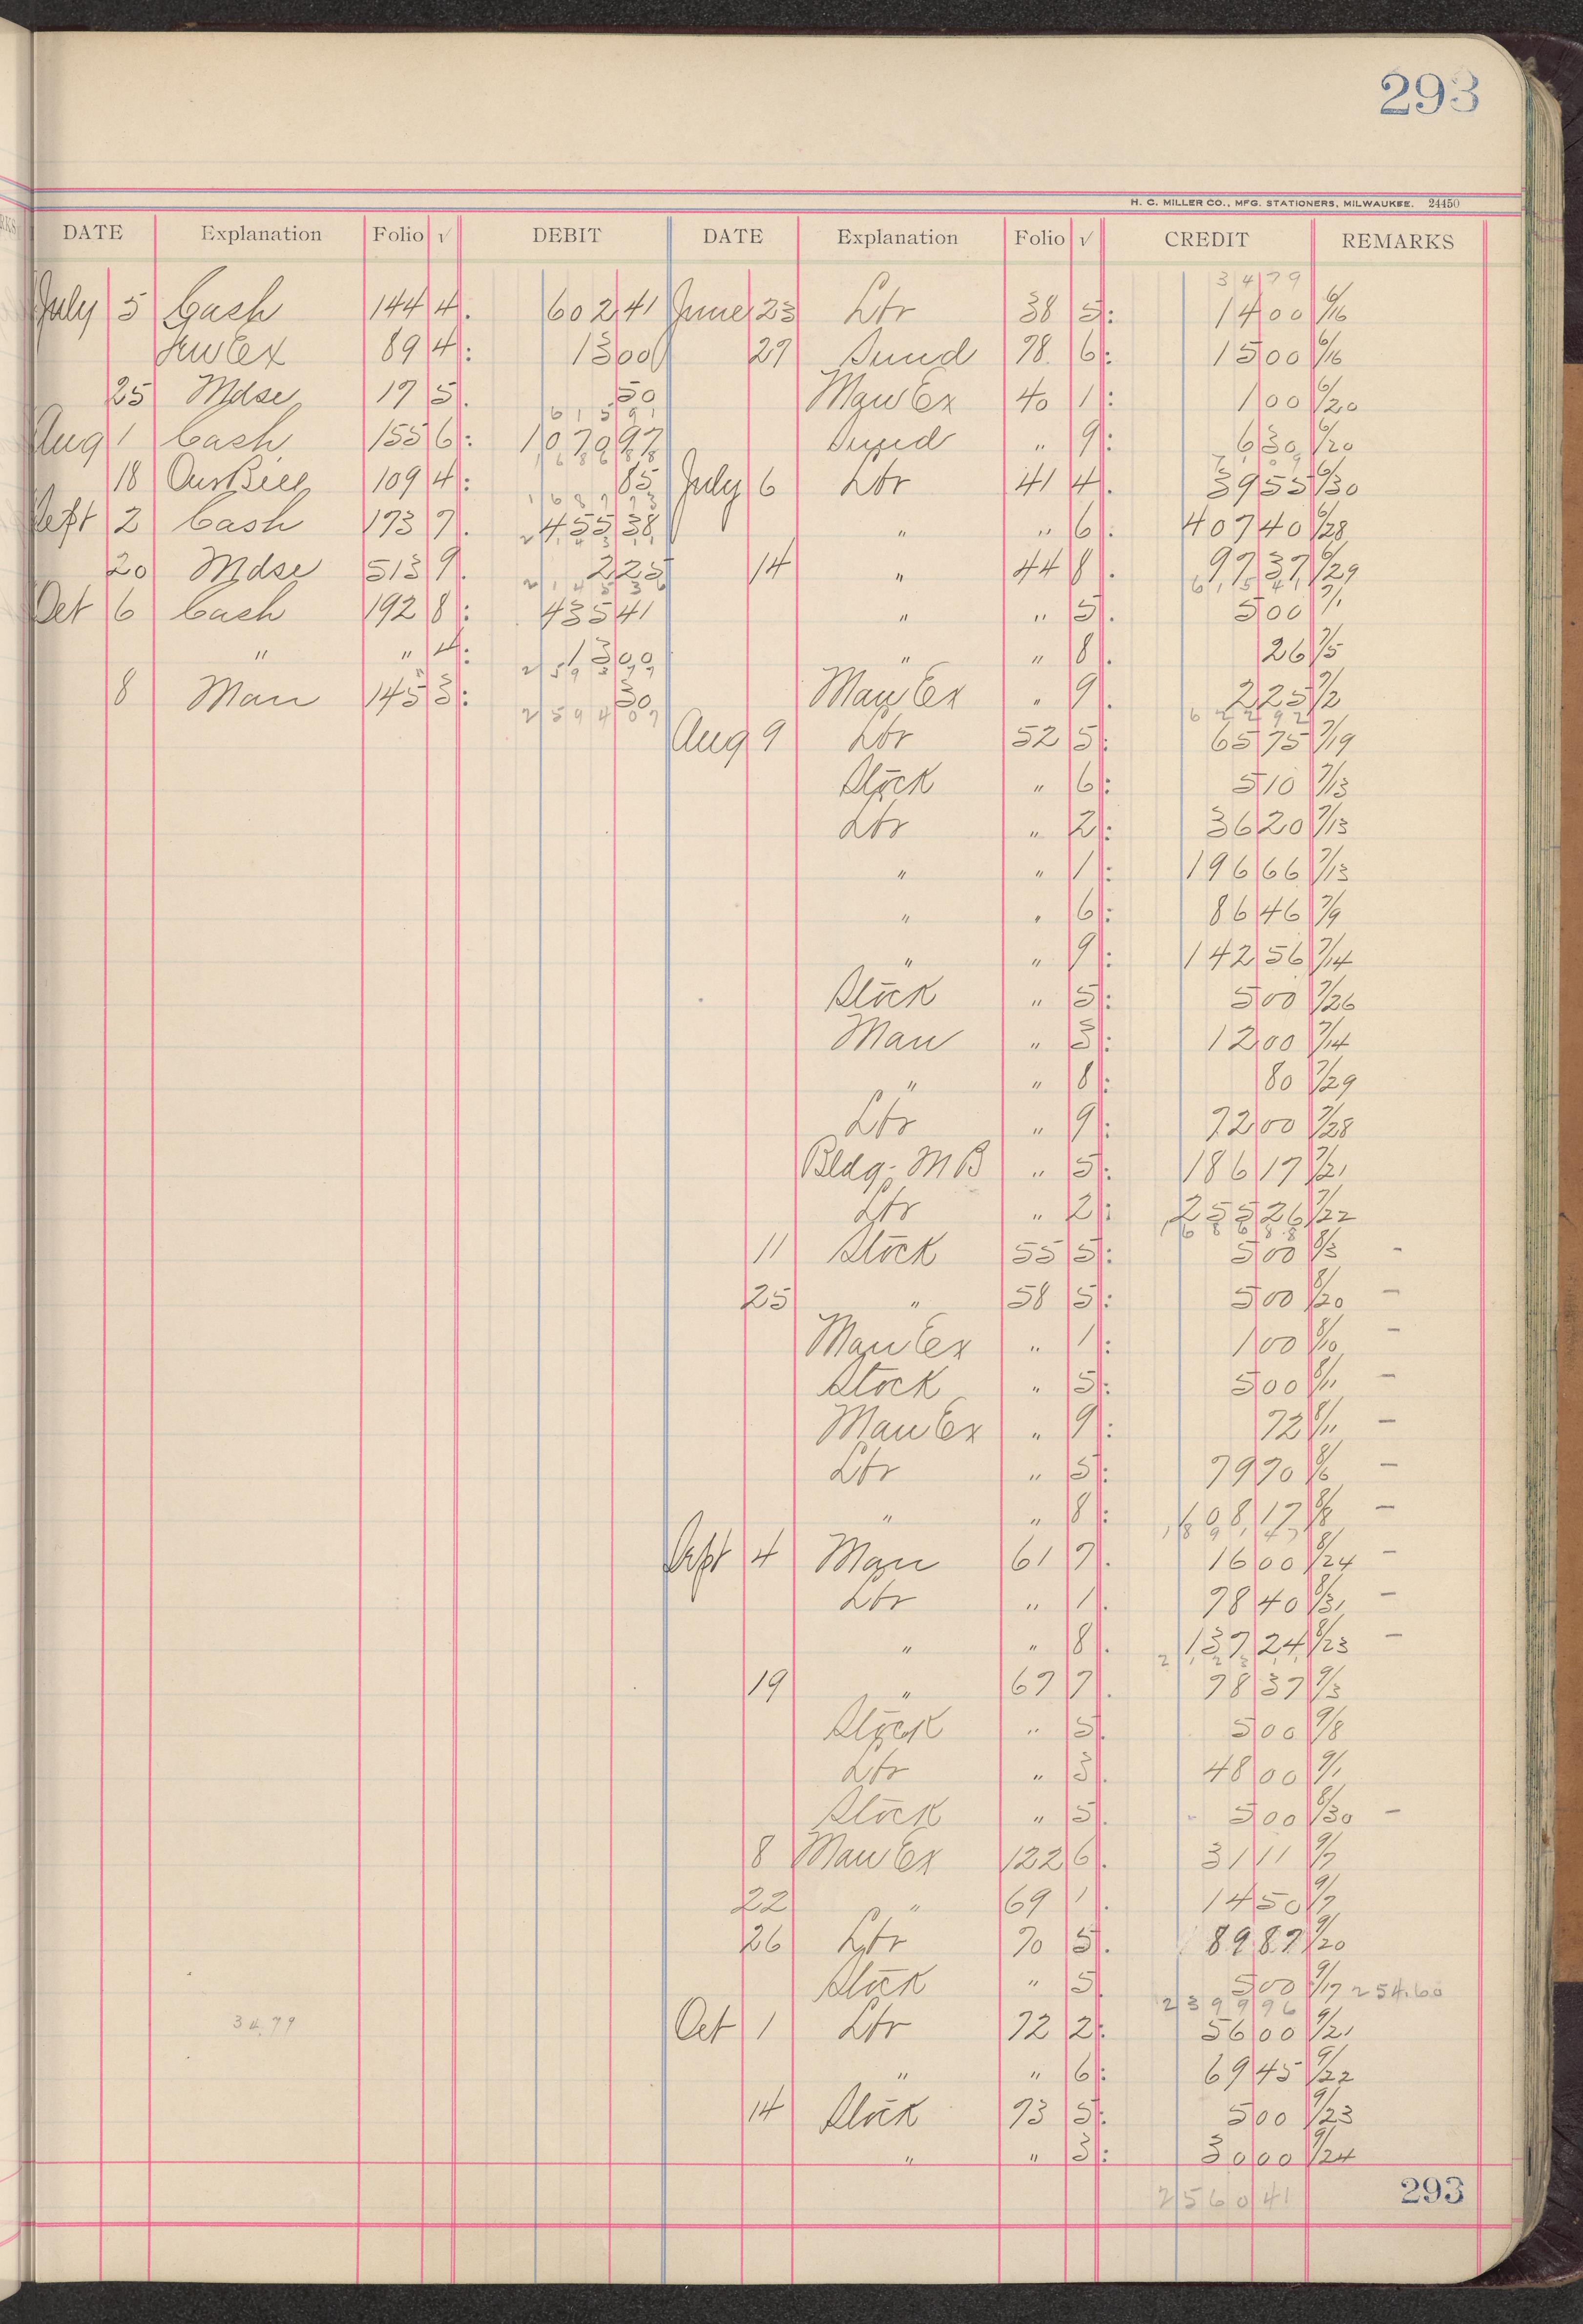 293
H. C. MILLER CO., MFG. STATIONERS, MILWAUKEE. 24450
DATE Explanation Folio √ DEBIT DATE Explanation Folio √ CREDIT REMARKS
3479
July 5 Cash 144 4. 602 41 June 23 Lbr 38 5: 14 00 6/16
89 4: 13 00 27 Sund 78. 6: 15 00 6/16
25 Mdse 17 5. 50 Man Ex 40 1: 1 00 6/20
6 1 5 9 1
Aug 1 Cash 155 6: 1070 97 Sund " 9: 6 30 6/20
1 6 8 6 8 8
18 Our Bill 109 4: 85 July 6 Lbr 41 4. 39 55 6/30
1 6 8 7 7 3
Sept 2 Cash 173 7. 455 38 " " 6. 407 40 6/28
20 Mdse 513 9. 2 25 14 " 44 8. 97 37 6/29
Oct 6 Cash 192 8: 435 41 " " 5. 5 00 7/1
" " 4: 13 00 " " 8. 26 7/5
2 5 9 3 7 7
8 Man 145 3: 30 Man Ex " 9. 2 25 7/2
2 5 9 4 0 7 6 2 2 9 2
Aug 9 Lbr 52 5: 65 75 7/19
Stock " 6: 5 10 7/13
Lbr " 2: 36 20 7/13
" " 1: 196 66 7/13
" " 6: 86 46 7/9
" " 9: 142 56 7/14
Stock " 5: 5 00 7/26
Man " 3: 12 00 7/14
" " 8: 80 7/29
Lbr " 9: 72 00 7/28
Bldg; M B " 5: 186 17 7/21
Lbr " 2: 255 26 7/22
1 6 8 6 8 8
11 Stock 55 5: 5 00 8/3 -
25 " 58 5: 5 00 8/20 -
Man Ex " 1: 1 00 8/10 -
Stock " 5: 5 00 8/11 -
Man Ex " 9: 72 8/11 -
Lbr " 5: 79 70 8/6 -
" " 8: 108 17 8/8 -
Sept 4 Man 61 7. 16 00 8/24 -
Lbr " 1. 78 40 8/31 -
" " 8. 137 24 8/23 -
19 " 67 7. 78 37 9/3
Stock " 5. 5 00 9/8
Lbr " 3. 48 00 9/1
Stock " 5. 5 00 8/30 -
8 Man Ex 122 6. 31 11 9/7
22 " 69 1. 14 50 9/7
26 Lbr 70 5. 89 87 9/20
Stock " 5. 5 00 9/17 254.60
2 3 9 9 9 6
34.79 Oct 1 Lbr 72 2: 56 00 9/21
" " 6: 69 45 9/22
14 Stock 73 5: 5 00 9/23
" " 3: 30 00 9/24
2560 41 293